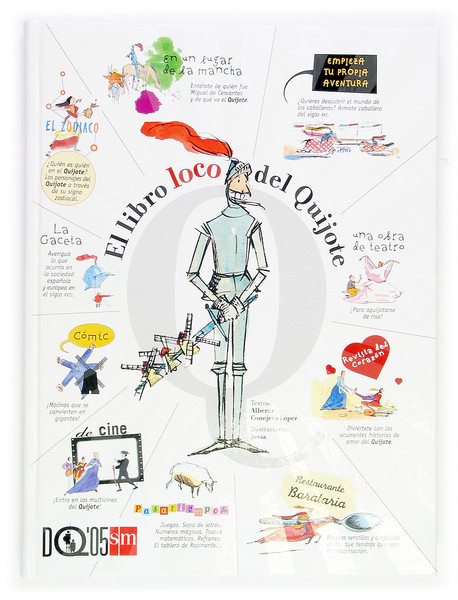 en un lugar
de la mancha
Entérate de quién fue
Miguel de Cervantes
y de qué va el Quijote.
EMPIEZA
TU PROPIA
AVENTURA
¿Quieres descubrir el mundo de
los caballeros? Ármate caballero
del siglo XXI.
EL ZODIACO
¿Quién es quién
en el Quijote?
Los personajes del
Quijote a través
de su signo
zodiacal.
El libro loco del Quijote
La
Gaceta
Averigua
lo que
ocurría en
la sociedad
española
y europea en
el siglo XVII.
una obra
de teatro
¡Para aquijotarse
de risa!
Cómic
¡Molinos que se
convierten en
gigantes!
Revista del
Corazón
Diviértete con las
ocurrentes historias de
amor del Quijote.
Textos:
Alberto
Conejero López
Ilustraciones:
de cine
¡Entra en los multicines
del Quijote!
DQ'05 sm
Pasatiempos
Juegos. Sopa de letras.
Números mágicos. Trucos
matemáticos. Refranes.
El tablero de Rocinante...
Restaurante
Barataria
sencillas y
que tendrás que
imaginación.